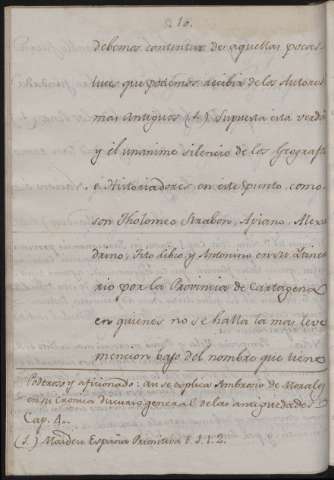 210.
debemos contentar de aquellas pocas
luces que podemos recibir de los Autores
mas antiguos (4.) Supuesta esta verdad
y el unanime silencio de los Geografos
e Historiadores en este punto como
son Tholomeo Strabon, Apiano Alexan
drino, Tito Libio, y Antonino en su Itine
rio por la Provincia de Cartagena
en quienes no se halla la mas leve
mencion bajo del nombre que tiene
Poderoso y aficionado: asi se explica Ambrosio de Morales
en su Cronica discurso general de las antiguedades
Cap. 4.
(5.) Masdeu España Primitiva t. 1. 2.